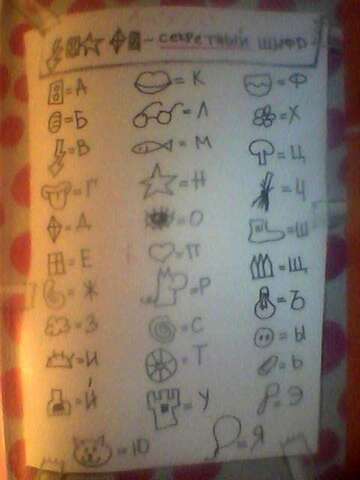 - СЕКРЕТНЫЙ ШИФР -
= А = К = Ф
= Б = Л = Х
= В = М = Ц
= Г = Н = Ч
= Д = О = Ш
= Е = П = Щ
= Ж = Р = Ъ
= З = С = Ы
= И = Т = Ь
= Й = У = Э
= Ю = Я